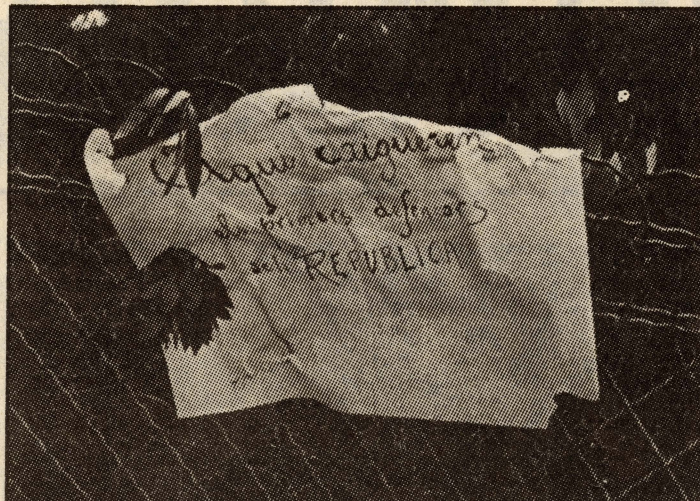 Aqui caigueren
els primers defensors
de la REPUBLICA